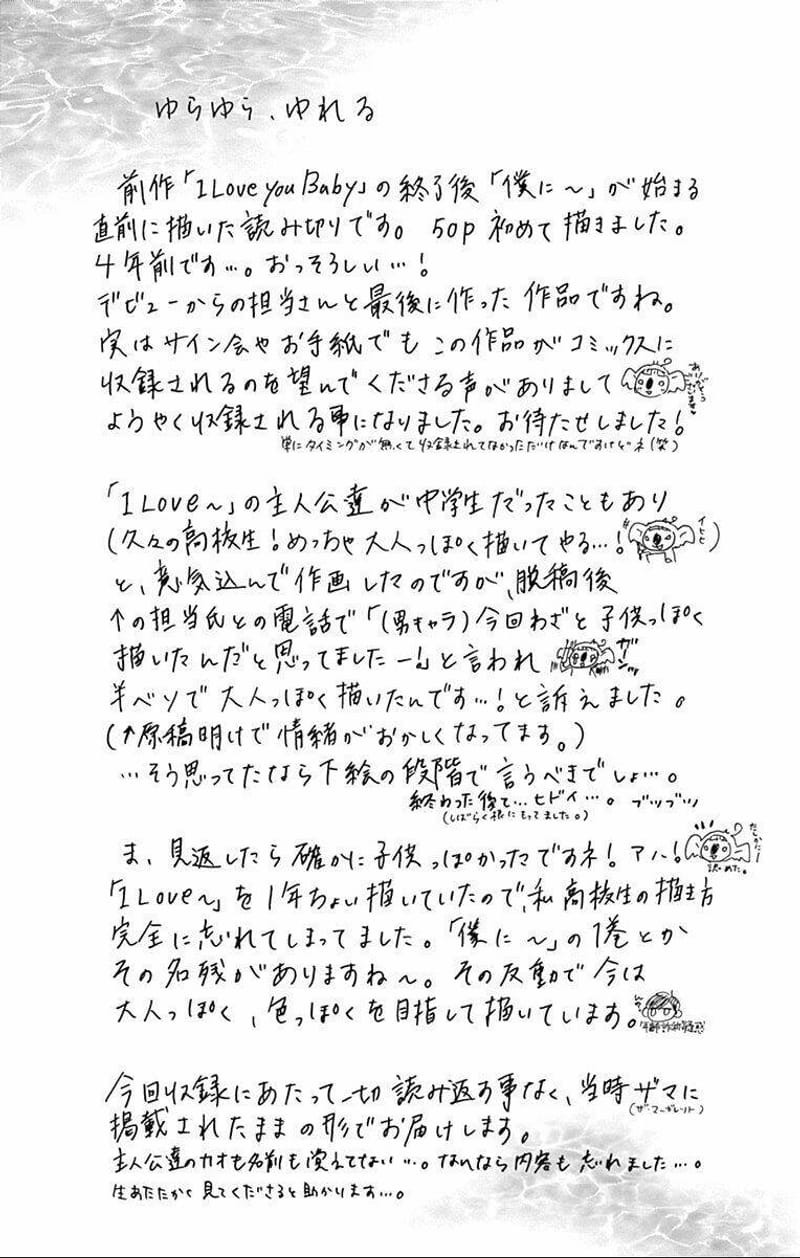 ゆらゆら、ゆれる
前作「I Love you Baby」の終了後「僕に～」が始まる
直前に描いた読み切りです。50p 初めて描きました。
4年前です…。おっそろしい…!
デビューからの担当さんと最後に作った作品ですね。
実はサイン会やお手紙でもこの作品がコミックスに
収録されるのを望んでくださる声がありまして
ありがとうございます
ようやく収録される事になりました。お待たせしました!
単にタイミングが無くて収録されてなかっただけなんですけどネ(笑)
「I Love～」の主人公達が中学生だったこともあり
(久々の高校生!めっちゃ大人っぽく描いてやる…!
イヒヒ
)
と、意気込んで作画したのですが、脱稿後
↑の担当氏との電話で「(男キャラ)今回わざと子供っぽく
描いたんだと思ってましたー!」と言われ
ガーン
半ベソで大人っぽく描いたんです…!と訴えました。
(↑原稿明けで情緒がおかしくなってます。)
…そう思ってたなら下絵の段階で言うべきでしょ…。
終わった後で…ヒドイ…。ブツブツ
(しばらく根にもってました。)
ま、見返したら確かに子供っぽかったですネ!アハ!
たしかにー!
認めた。
「I Love～」を1年ちょい描いていたので、私高校生の描き方
完全に忘れてしまってました。「僕に～」の1巻とか
その名残がありますね～。その反動で今は
大人っぽく、色っぽくを目指して描いています。
年齢詐称疑惑
今回収録にあたって一切読み返す事なく、当時ザマに
(ザ・マーガレット)
掲載されたままの形でお届けします。
主人公達のカオも名前も覚えてない…。なんなら内容も忘れました…。
生あたたかく見てくださると助かります…。